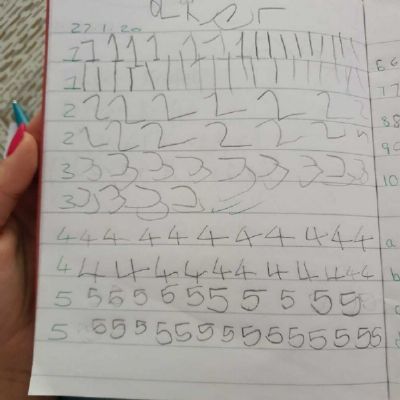 27.1.20
1 1 1 1 1 1 1 1 1 1 1 1 1 1 1 1 1
1 1 1 1 1 1 1 1 1 1 1 1 1 1 1 1 1
2 2 2 2 2 2 2 2
2 2 2 2 2 2 2 2 2
3 3 3 3 3 3 3 3 3 3
3 3 3 3 3
4 4 4 4 4 4 4 4 4 4 4
4 4 4 4 4 4 4 4 4 4 4
5 5 5 5 5 5 5 5 5 5 5
5 5 5 5 5 5 5 5 5 5 5 5 5 5 5
6 6
7 7
88
90
10
a
b